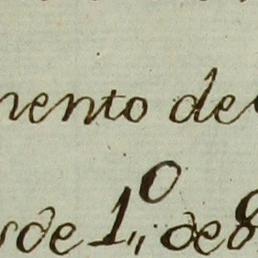 mento de
sde 1º de 8